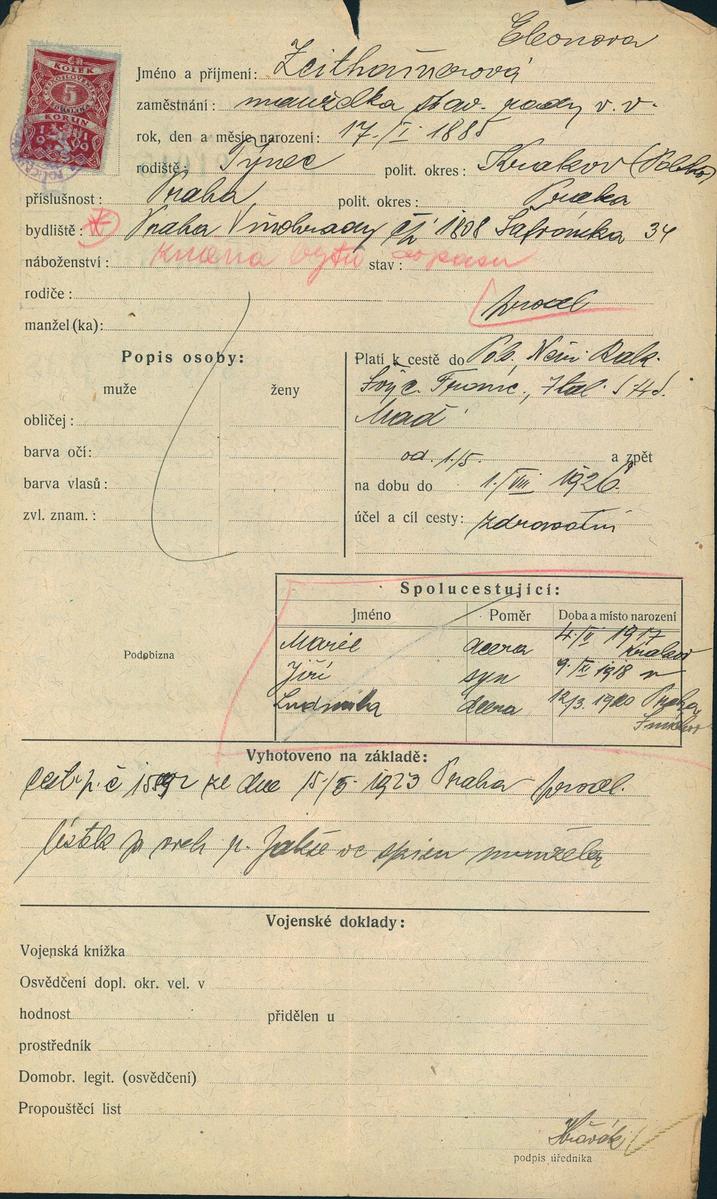 KOLEK
5
KORUN
Eleonora
Jméno a příjmení: Zeithamerová
zaměstnání: manželka stav. rady v. v.
rok, den a měsíc narození: 17./I. 1885
rodiště: Tynec polit. okres: Krakov (Polsko)
příslušnost: Praha polit. okres: Praha
bydliště: Praha Vinohrady čp. 1808 34
náboženství: stav:
změna bytu do pasu
rodiče: prodl
manžel(ka):
Popis osoby:
muže ženy
obličej:
barva očí:
barva vlasů:
zvl. znam.:
Platí k cestě do Pol., Něm. Rak.
Švýc. Franc., Ital. S.H.S.
Maď
od 1./5. a zpět
na dobu do 1./VIII 1926
účel a cíl cesty: zdravotní
Spolucestující:
Jméno Poměr Doba a místo narození
Marie dcera 1917 Krakov
Jiří syn 1918
Ludmila dcera 12/3. 1920 Praha
Podobizna
Vyhotoveno na základě:
cest. p. č. ze dne 15/5. 1923 Praha prodl.
ve spisu manžela
Vojenské doklady:
Vojenská knížka
Osvědčení dopl. okr. vel. v
hodnost přidělen u
prostředník
Domobr. legit. (osvědčení)
Propouštěcí list
podpis úředníka